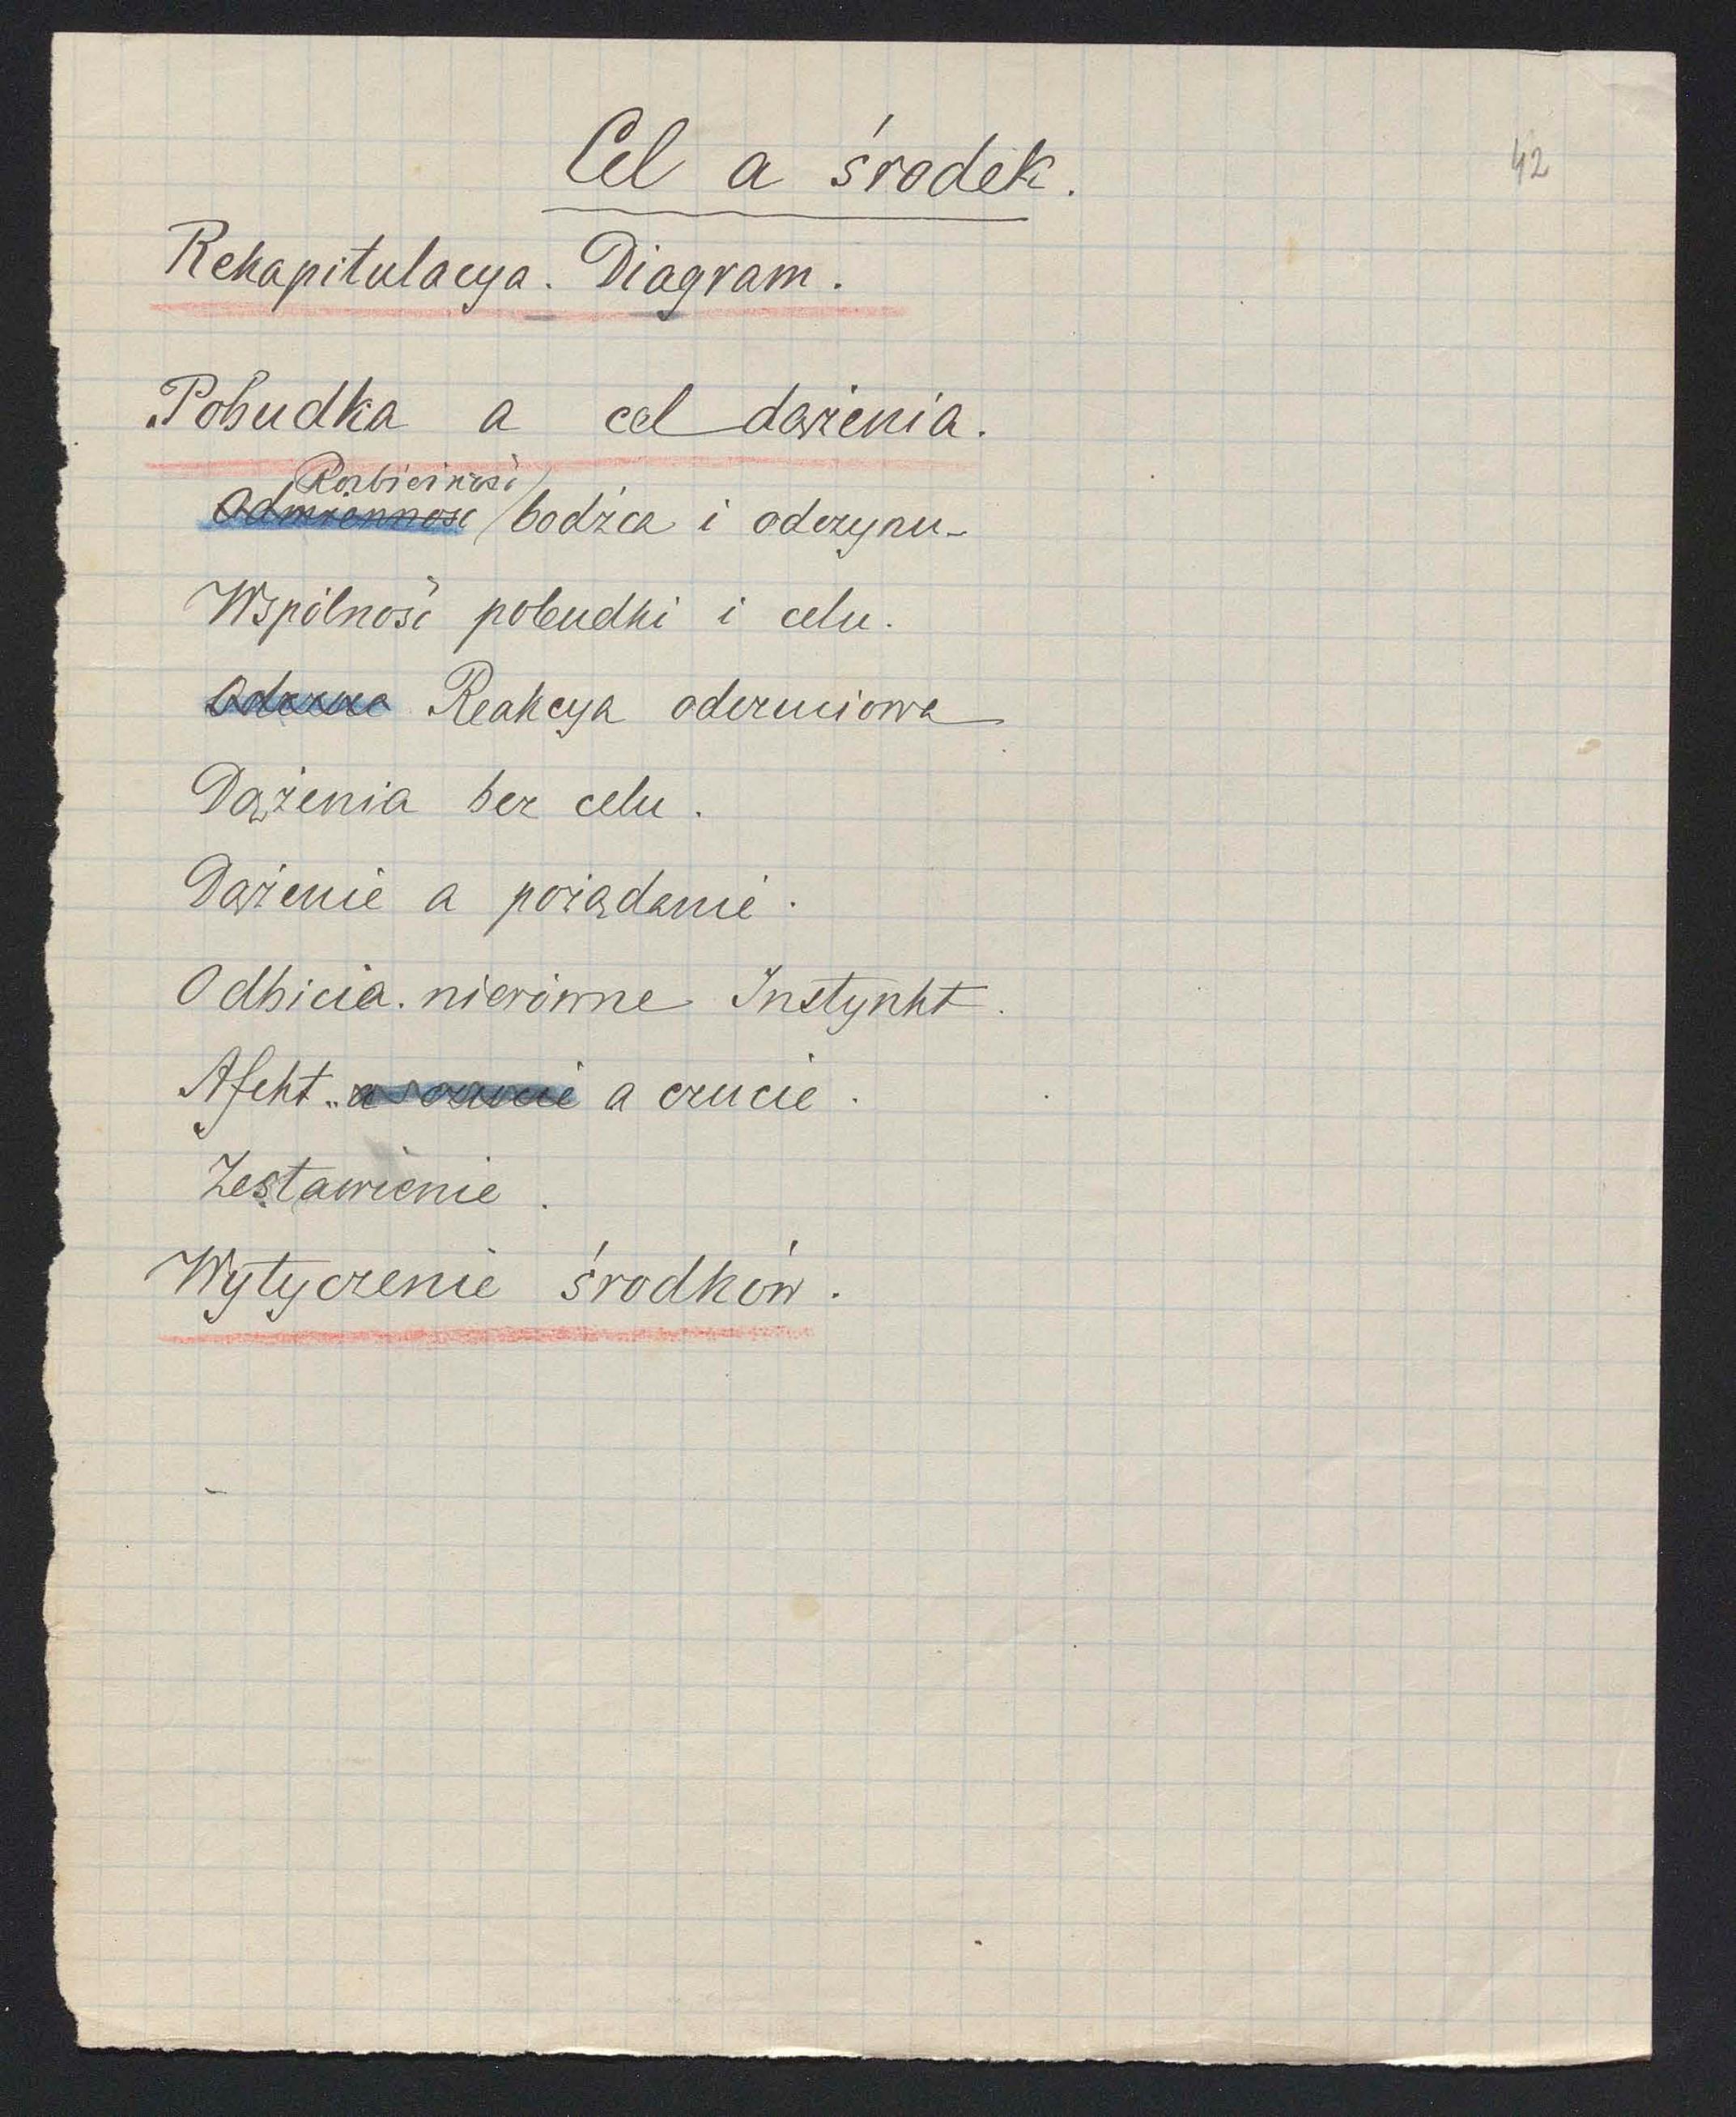 Cel a środek.
42
Rekapitulacya. Diagram.
Pobudka a cel dążenia.
Rozbieżność
Odmienność bodźca i odczynu
Wspólność pobudki i celu.
Reakcya odczuciowa
Dążenia bez celu.
Dążenie a pożądanie.
Odbicia nierówne Instynkt.
Afekt a czucie.
Zestawienie.
Wytyczenie środków.